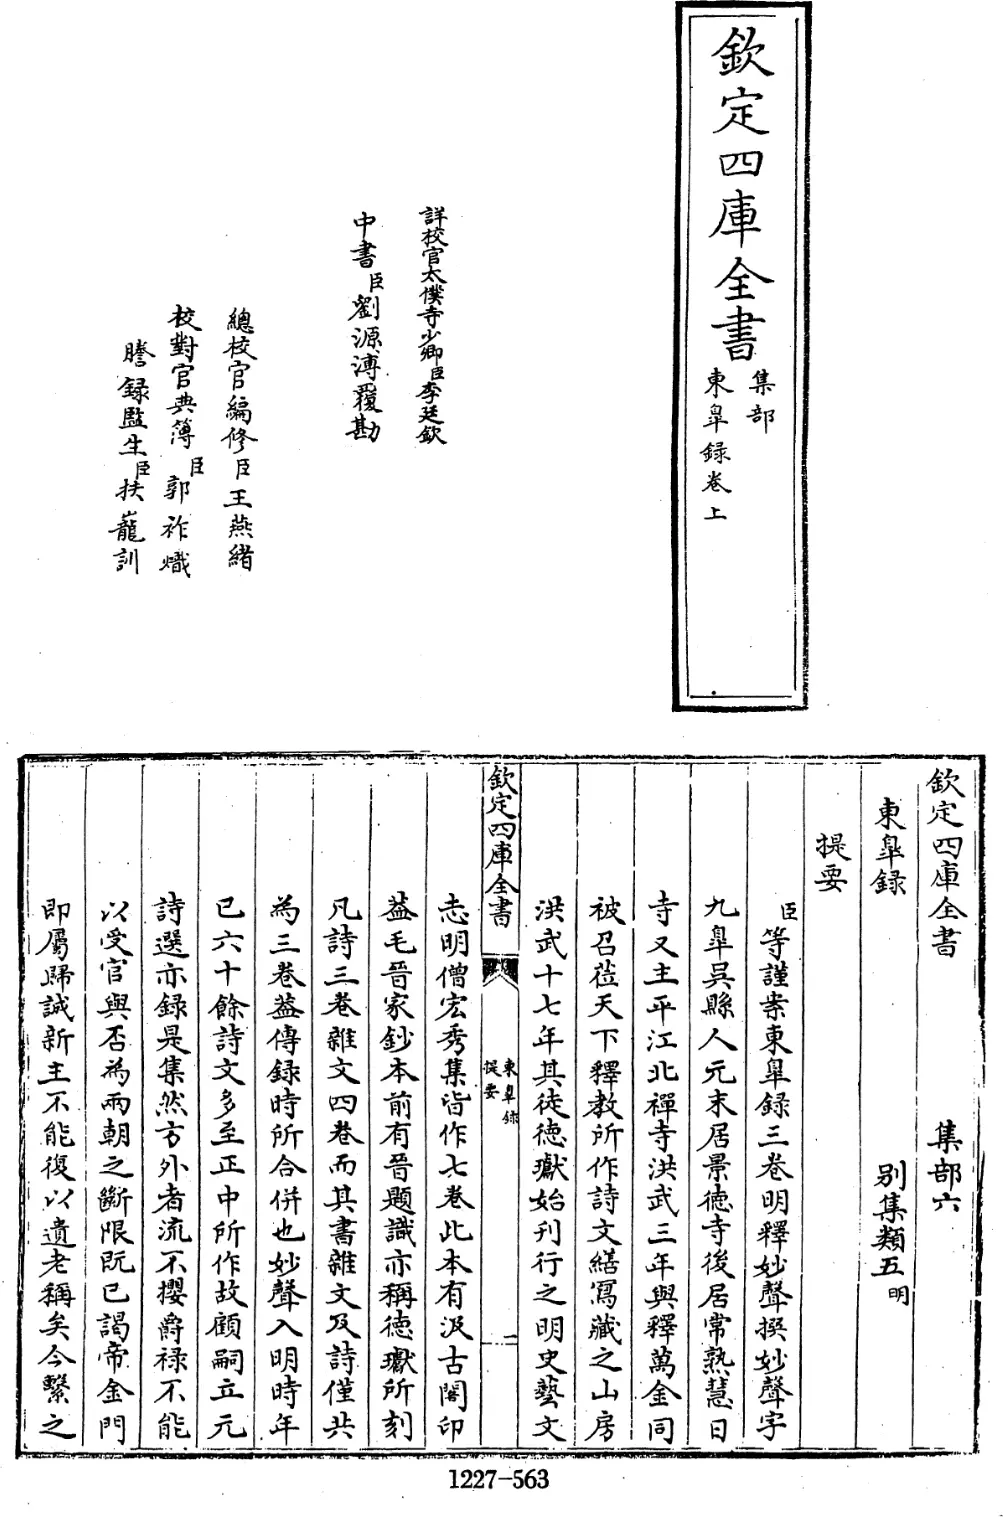 欽定四庫全書
集部
東臯録卷上
詳校官太僕寺少卿臣李廷欽
中書臣劉源溥覆勘
總校官編修臣王燕緒
校對官典簿臣郭祚熾
謄録監生臣扶巃訓
欽定四庫全書
集部六
東臯録
別集類五明
提要
臣等謹案東臯録三卷明釋妙聲撰妙聲字
九臯吳縣人元末居景徳寺後居常熟慧日
寺又主平江北禪寺洪武三年與釋萬金同
被召莅天下釋教所作詩文繕寫藏之山房
洪武十七年其徒徳瓛始刊行之明史藝文
欽定四庫全書
東臯錄
提要
一
志明僧宏秀集皆作七卷此本有汲古閣印
葢毛晉家鈔本前有晉題識亦稱徳瓛所刻
凡詩三卷雜文四卷而其書雜文及詩僅共
為三卷葢傳録時所合併也妙聲入明時年
已六十餘詩文多至正中所作故顧嗣立元
詩選亦録是集然方外者流不攖爵禄不能
以受官與否為兩朝之斷限既已謁帝金門
即屬歸誠新主不能復以遺老稱矣今繫之
1227-563